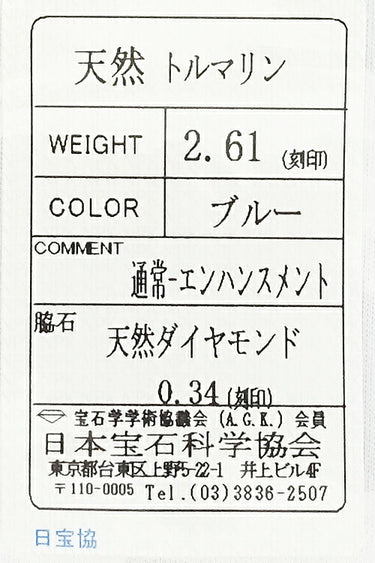 天然 トルマリン
WEIGHT 2.61 (刻印)
COLOR ブルー
COMMENT
通常-エンハンスメント
脇石 天然ダイヤモンド
0.34 (刻印)
宝石学学術協議会 (A.G.K.) 会員
日本宝石科学協会
東京都台東区上野5-22-1 井上ビル4F
〒110-0005 Tel.(03)3836-2507
日宝協